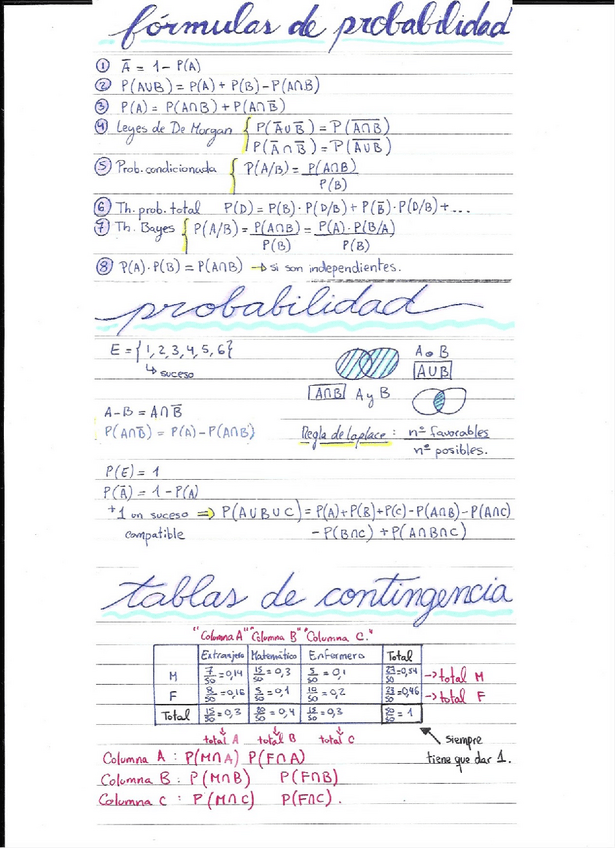 fórmulas de probabilidad
① Ā = 1 - P(A)
② P(A∪B) = P(A) + P(B) - P(A∩B)
③ P(A) = P(A∩B) + P(A∩B̅)
④ Leyes de De Morgan { P(A̅∪B̅) = P(A̅∩̅B̅)
P(A̅∩B̅) = P(A̅∪̅B̅)
⑤ Prob. condicionada { P(A/B) = P(A∩B)
P(B)
⑥ Th. prob. total P(D) = P(B)·P(D/B) + P(B̅)·P(D/B) + ...
⑦ Th. Bayes { P(A/B) = P(A∩B) = P(A)·P(B/A)
P(B) P(B)
⑧ P(A)·P(B) = P(A∩B) → si son independientes.
probabilidad
E = {1, 2, 3, 4, 5, 6}
↳ suceso
A o B
A∪B
A∩B A y B
A-B = A∩B̅
P(A∩B̅) = P(A) - P(A∩B)
Regla de laplace: nº favorables
nº posibles.
P(E) = 1
P(A̅) = 1 - P(A)
+1 un suceso ⇒ P(A∪B∪C) = P(A)+P(B)+P(C)-P(A∩B)-P(A∩C)
compatible - P(B∩C) + P(A∩B∩C)
tablas de contingencia
"Columna A" "Columna B" "Columna C."
Extranjero Matemático Enfermero Total
M 7/50 = 0,14 15/50 = 0,3 5/50 = 0,1 27/50 = 0,54 → total M
F 8/50 = 0,16 5/50 = 0,1 10/50 = 0,2 23/50 = 0,46 → total F
Total 15/50 = 0,3 20/50 = 0,4 15/50 = 0,3 50/50 = 1
total A total B total C
siempre
tiene que dar 1.
Columna A : P(M∩A) P(F∩A)
Columna B : P(M∩B) P(F∩B)
Columna C : P(M∩C) P(F∩C).